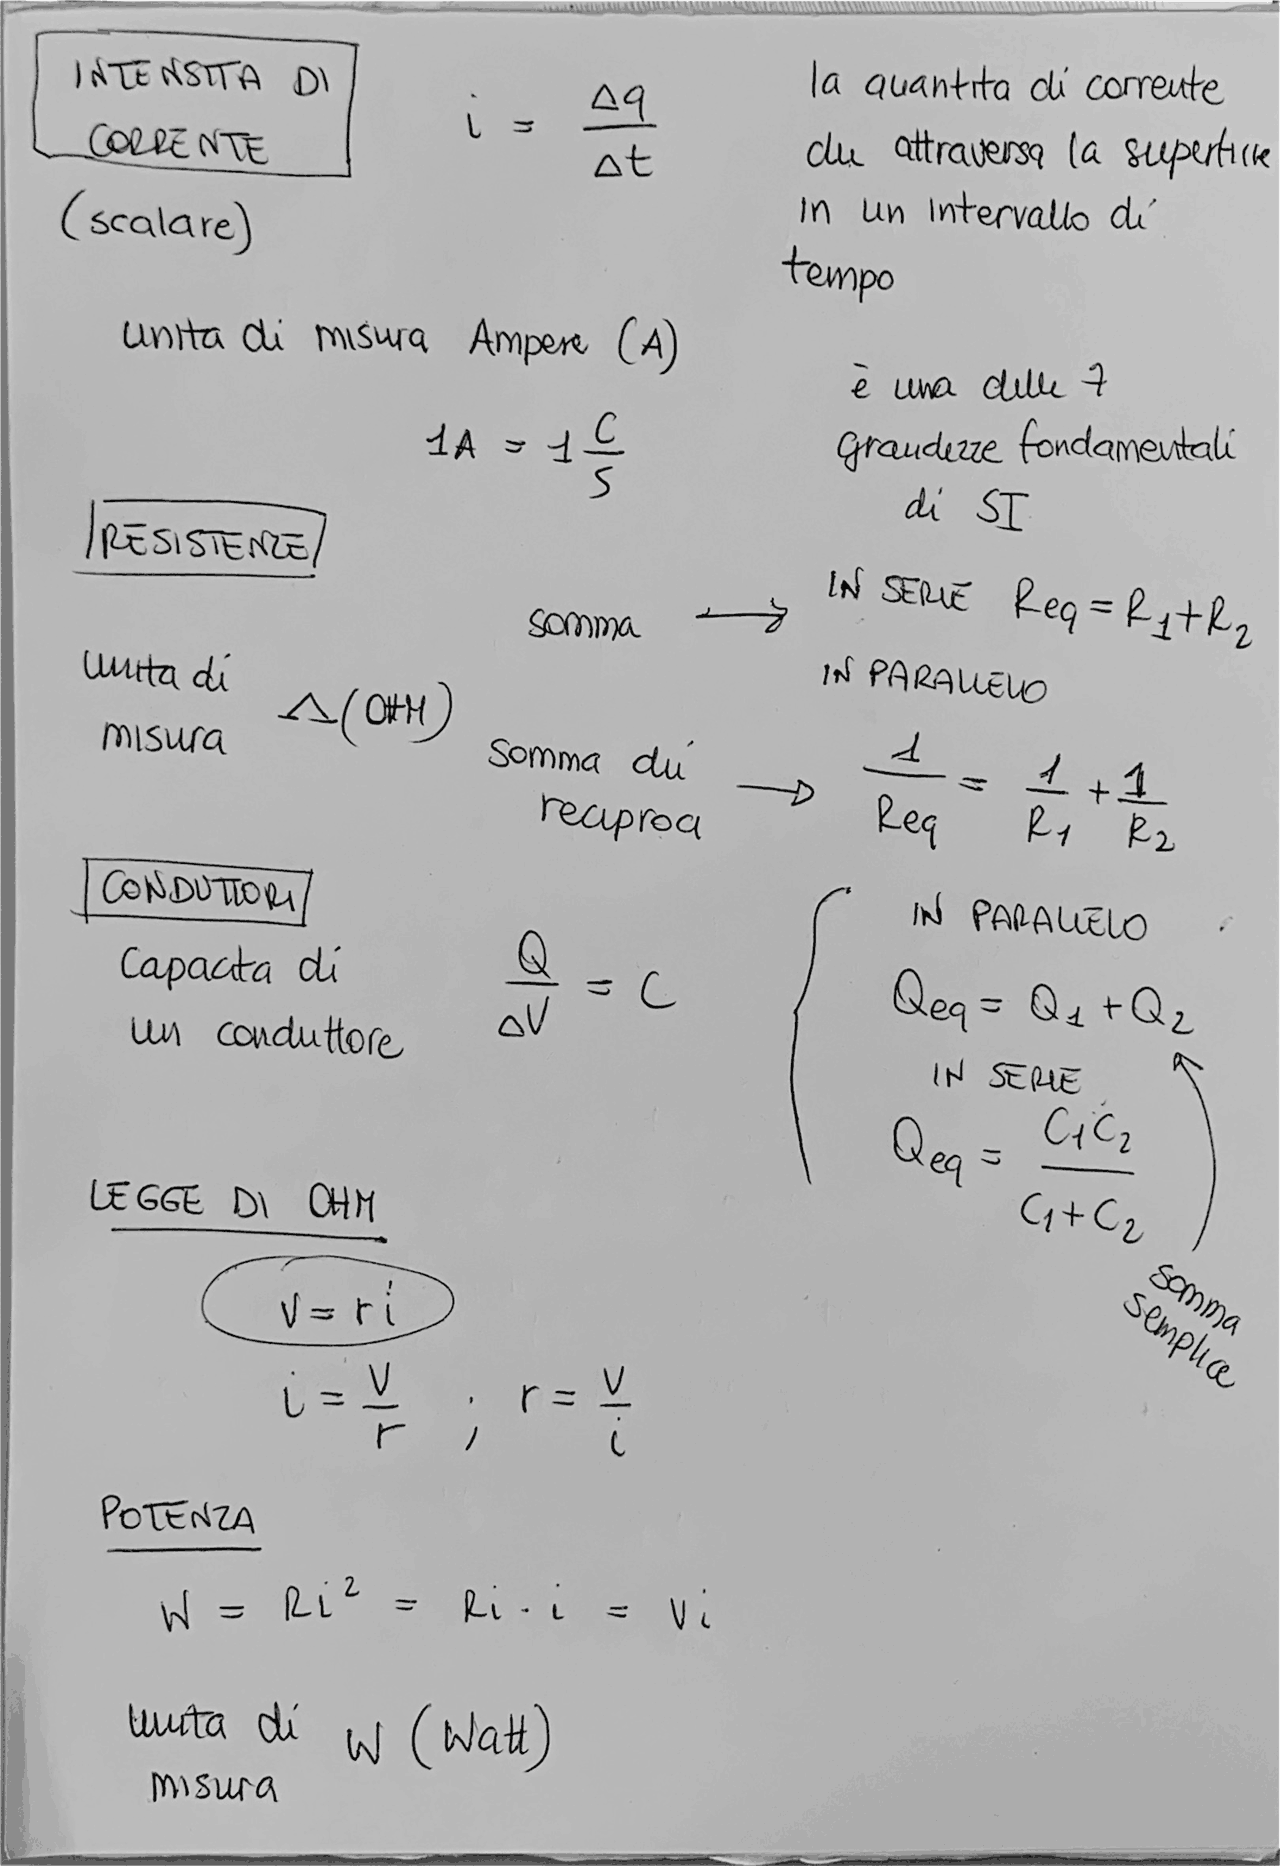 INTENSITA DI
CORRENTE
(scalare)
i = Δq / Δt
la quantita di corrente
che attraversa la superficie
in un intervallo di
tempo
unita di misura Ampere (A)
1A = 1 C/s
è una delle 7
grandezze fondamentali
di SI
RESISTENZE
unita di
misura
Δ (OHM)
somma → IN SERIE Req = R1 + R2
IN PARALLELO
somma dei
reciproci
→ 1/Req = 1/R1 + 1/R2
CONDUTTORI
Capacita di
un conduttore
Q/ΔV = C
IN PARALLELO
Qeq = Q1 + Q2
IN SERIE
Qeq = C1C2 / C1+C2
somma
semplice
LEGGE DI OHM
V = ri
i = V/r ; r = V/i
POTENZA
W = Ri² = Ri · i = Vi
unita di
misura
W (Watt)